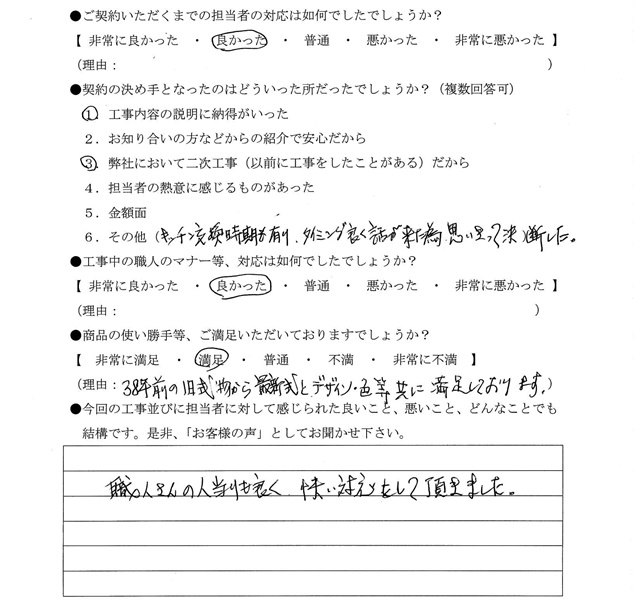 ●ご契約いただくまでの担当者の対応は如何でしたでしょうか？
【 非常に良かった ・ 良かった ・ 普通 ・ 悪かった ・ 非常に悪かった 】
（理由： ）
●契約の決め手となったのはどういった所だったでしょうか？（複数回答可）
１．工事内容の説明に納得がいった
２．お知り合いの方などからの紹介で安心だから
３．弊社において二次工事（以前に工事をしたことがある）だから
４．担当者の熱意に感じるものがあった
５．金額面
６．その他（キッチン交換時期が有り、タイミング良く話が来た為 思い切って決断した。
●工事中の職人のマナー等、対応は如何でしたでしょうか？
【 非常に良かった ・ 良かった ・ 普通 ・ 悪かった ・ 非常に悪かった 】
（理由： ）
●商品の使い勝手等、ご満足いただいておりますでしょうか？
【 非常に満足 ・ 満足 ・ 普通 ・ 不満 ・ 非常に不満 】
（理由：38年前の旧式物から最新式とデザイン・色等共に満足しております。）
●今回の工事並びに担当者に対して感じられた良いこと、悪いこと、どんなことでも
結構です。是非、「お客様の声」としてお聞かせ下さい。
職人さんの人当りも良く、快い対応をして頂きました。